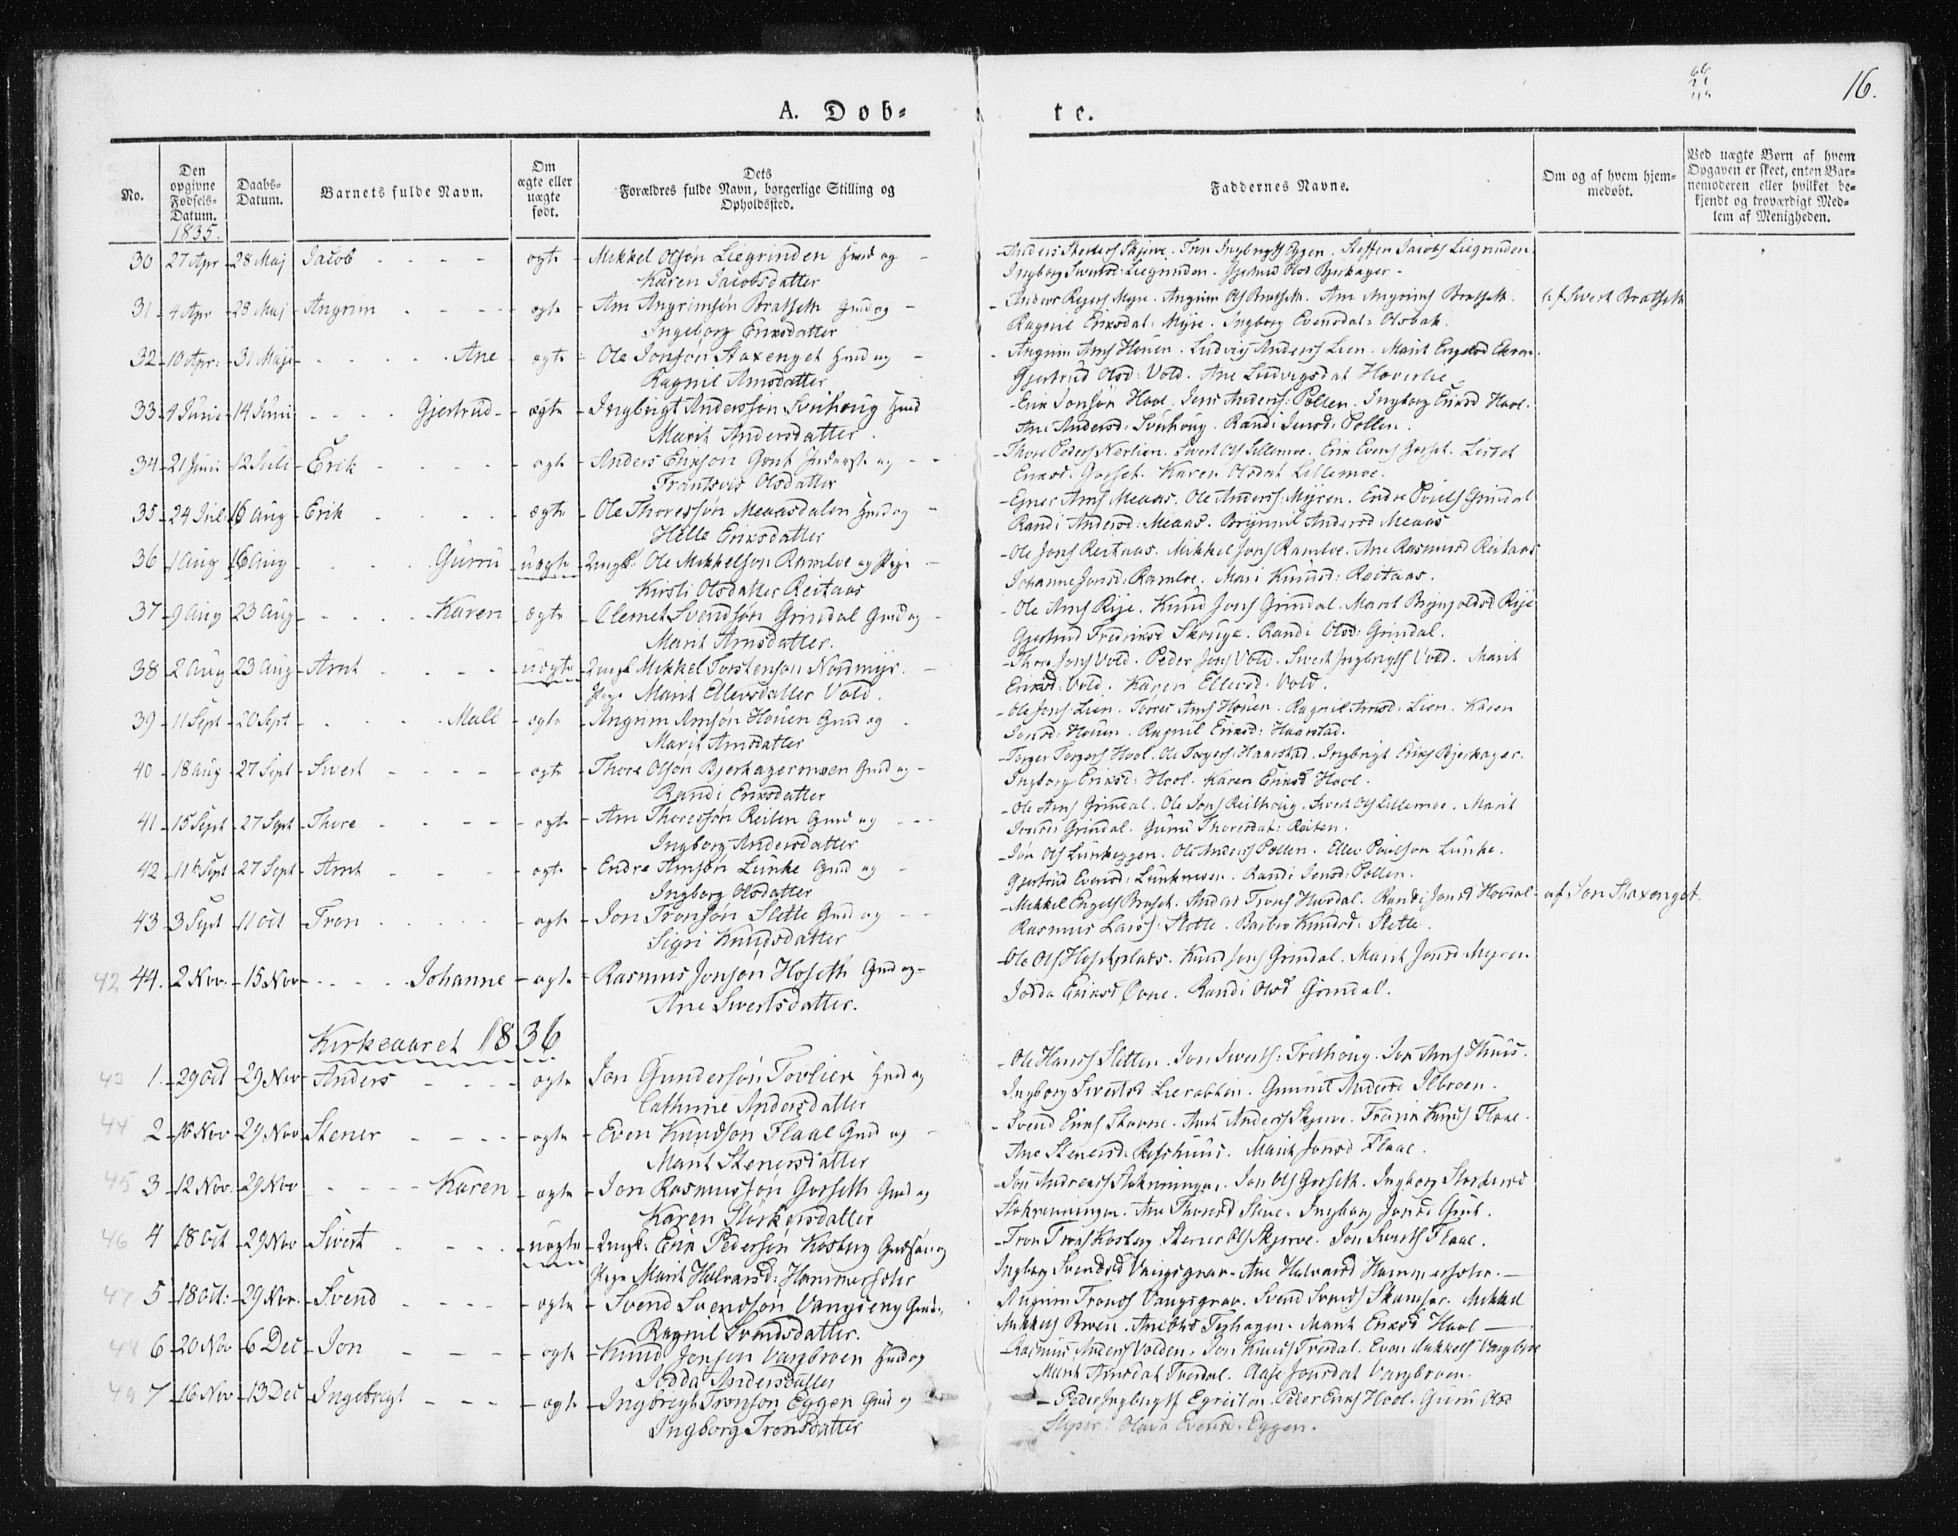 16.
A. Dobte.
No.
Den opgivne Fødsels-Datum.
Daabs-Datum.
Barnets fulde Navn.
Om ægte eller uægte født.
Dets Forældres fulde Navn, borgerlige Stilling og Opholdssted.
Faddernes Navne.
Om og af hvem hjemmedøbt.
Ved uægte Børn af hvem Opgaven er skeet, enten Barnemoderen eller hvilket bekjendt og troværdigt Medlem af Menigheden.
1835.
30 27 Apr 28 Maj Jacob ægte Mikkel Olsøn Liegrinden Gmd og
Karen Jacobsdatter
Ingborg Sivertsd: Liegrinden. Gjertrud Olsd Bjerkager
31 4 Apr 28 Maj Angrim ægte Arn Angrimsøn Bratseth Gmd og
Ingeborg Eriksdatter
Anders Myre. Angrim Ols Bratseth. Arn Angrims Bratseth. Sivert Bratseth
Ragnil Eriksdat: Myre. Ingborg Evensdat: Olsbak.
32 10 Apr: 31 Maj Ane ægte Ole Jonsøn Staxenget Gmd og
Ragnil Arnsdatter
Angrim Arns Houen. Ludvig Anders Lien. Marit
Gjertrud Olsd: Vold. Ane Ludvigsdat Haverlie
33 9 Juni 14 Juni Gjertrud ægte Ingbrigt Anderssøn Svinhoug Gmd
Marit Andersdatter.
Erik Jonsøn Hool. Jens Anders: Pollen. Ingborg Eriksd Hool.
Ane Andersd: Svinhoug. Randi Jensd: Pollen.
34 21 Juni 12 Juli Erik ægte Anders Erikson Inderst og
Olsdatter
Thore Peders Nerlien. Sivert Ols Lillemoe. Erik Evens Gorset. Lisbet
Eriksd. Gorset. Karen Olsdat Lillemoe.
35 24 Jul: 16 Aug Erik ægte Ole Thoressøn Meaasdalen Gmd og
Hille Eriksdatter
Egner Arns Meaas. Ole Anders Myren. Endre Povels Grindal
Randi Andersd: Meaas. Brynnil Andersd Meaas
36 1 Aug 16 Aug Gurru uægte Ungk: Ole Mikkelson Ramloe og Pige
Kirsti Olsdatter Reitaas
Ole Jons Reitaas. Mikkel Jons Ramloe. Ane Rasmusd Reitaas
Johanne Jonsd: Ramloe. Mari Knudsd: Reitaas.
37 9 Aug 23 Aug Karen ægte Clemet Svendsøn Grindal Gmd og
Marit Arnsdatter.
Ole Arns Rije. Knud Jons Grindal. Marit Rije
Gjertrud Fredriksd Skouge. Randi Olsd: Grindal.
38 2 Aug 23 Aug Arnt uægte Ungk Mikkel Torstenson Nordmyr.
Pige Marit Ellevsdatter Vold.
Thore Jons Vold. Peder Jons Vold. Sivert Ingbrigts Vold. Marit
Eriksd: Vold. Karen Ellevsd: Vold.
39 11 Sept 20 Sept Mali ægte Angrim Arnsøn Houen Gmd og
Marit Arnsdatter
Ole Jons Lien. Torres Arns Houen. Ragnil Arnsd: Lien. Karen
Jonsd: Houen. Ragnil Eriksd: Haarstad.
40 18 Aug 27 Sept Sivert ægte Thore Olsøn Bjerkagermoen Gmd og
Randi Eriksdatter
Torger Torgers Hool. Ole Torgers Haarstad. Ingbrigt Eriks Bjerkager.
Ingborg Eriksd: Hool. Karen Eriksd Hool.
41 15 Sept 27 Sept Thore ægte Arn Thoressøn Reiten Gmd og
Ingborg Andersdatter
Ole Arns Grindal. Ole Jons Reithoug. Sivert Ols Lillemoe. Marit
Jonsd: Grindal. Guru Thoresdat: Reiten.
42 11 Sept 27 Sept Arnt ægte Endre Arnsøn Lunke Gmd og
Ingborg Olsdatter
Jon Ols Lunkeggen. Ole Anders Pollen. Ellev Poulson Lunke.
Gjertrud Evensd: Lunkmoen. Randi Jensd: Pollen.
43 3 Sept 11 Oct Tron ægte Jon Tronsøn Slette Gmd og
Sigri Knudsdatter
Mikkel Engels Bruset. Anders Trons Hovdal. Randi Jonsd Hovdal af Jon Staxenget.
Rasmus Lars: Slette. Barbro Knudsd: Slette.
42 44. 2 Nov. 15 Nov Johanne ægte Rasmus Jonsøn Hoseth Gmd og
Ane Sivertsdatter.
Ole Ols Knud Jons Grindal. Marit Jonsd Myren
Jodda Eriksd Ovne. Randi Olsd Grindal.
Kirkeaaret 1836
43 1. 29 Oct 29 Nov Anders ægte Jon Gundersøn Tovlien Gmd og
Cathrine Andersdatter
Ole Hans Sletten. Jon Siverts: Frethoug. Jon Arns Huus.
Ingborg Sivertsd Lierabben. Gunnil Andersd Ilbroen.
44 2 Nov 29 Nov Stener ægte Even Knudsøn Flaae Gmd og
Marit Stenersdatter
Svend Eriks Skovne. Arnt Anders Skjerve. Knuds Flaae.
Ane Stenersd: Refshuus. Marit Jonsd Flaae.
45 3 12 Nov. 29 Nov Karen ægte Jon Rasmussøn Gorseth Gmd og
Karen Storkersdatter
Jon Anders Stokrenningen. Jon Ols Gorseth. Ingborg Storkersd
Stokrenningen. Ane Thoresd Ingborg Jonsd
46 4 18 Oct 29 Nov Sivert uægte Ungk: Erik Pedersøn Kosberg Gmdsøn og
Pige Marit Halvarsd: Hammerseter
Tron Trons Kosberg. Stener Ols Skjerve. Jon Siverts Flaae.
Ingborg Svendsd Vangsgrav. Ane Halvarsd Hammerseter.
47 5 18 Oct: 29 Nov. Svend ægte Svend Svendsøn Vangseng Gmd:
Ragnil Svendsdatter.
Angrim Tronds Vangsgrav. Svend Svends Mikkel
Mikkels Broen. Marit Eriksd Hool
48 6 20 Nov 6 Dec Jon ægte Knud Jonsen Vangbroen Gmd og
Jodda Andersdatter
Rasmus Anders Volden. Jon Knuds Tverdal. Even Mikkels Vangbroe
Marit Arnsdat Tverdal. Aase Jonsdat Vangbroen.
49 7 16 Nov 13 Dec Ingebrigt ægte Ingbrigt Tronsøn Eggen Gmd og
Ingborg Tronsdatter
Peder Ingbrigts Peder Eriks Hool. Guru Olsd
Evensd. Eggen.